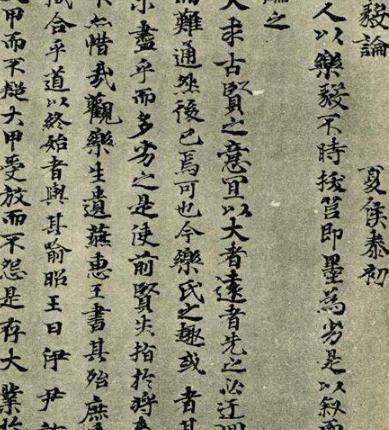 毅論　夏侯泰初
人以樂毅不時拔莒即墨為劣是以叙而
論之
夫求古賢之意宜以大者遠者先之必迂迴
而難通然後已焉可也今樂氏之趣或者其
未盡乎而多劣之是使前賢失指於將来
不亦惜哉觀樂生遺燕惠王書其殆庶
機合乎道以終始者與其喻昭王曰伊尹放
甲而不疑大甲受放而不怨是存大業於